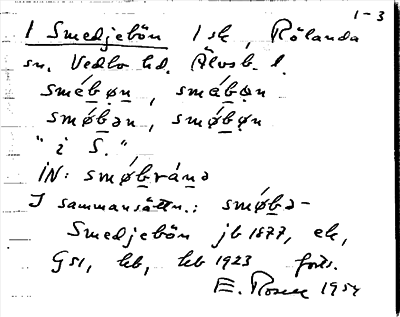 1-3
1 Smedjebön 1 sk, Rölanda
sn. Vedbo hd. Älvsb. l.
sméb̲ø̣n, smäb̲ø̣n
smǿb̲ən, smǿb̲ø̣n
"i S."
IN: smǿb̲ránə
I sammansättn.: smǿb̲ə-
Smedjebön jb 1877, ek,
GSI, hb, hb 1923 forts.
E. Rosell 1954